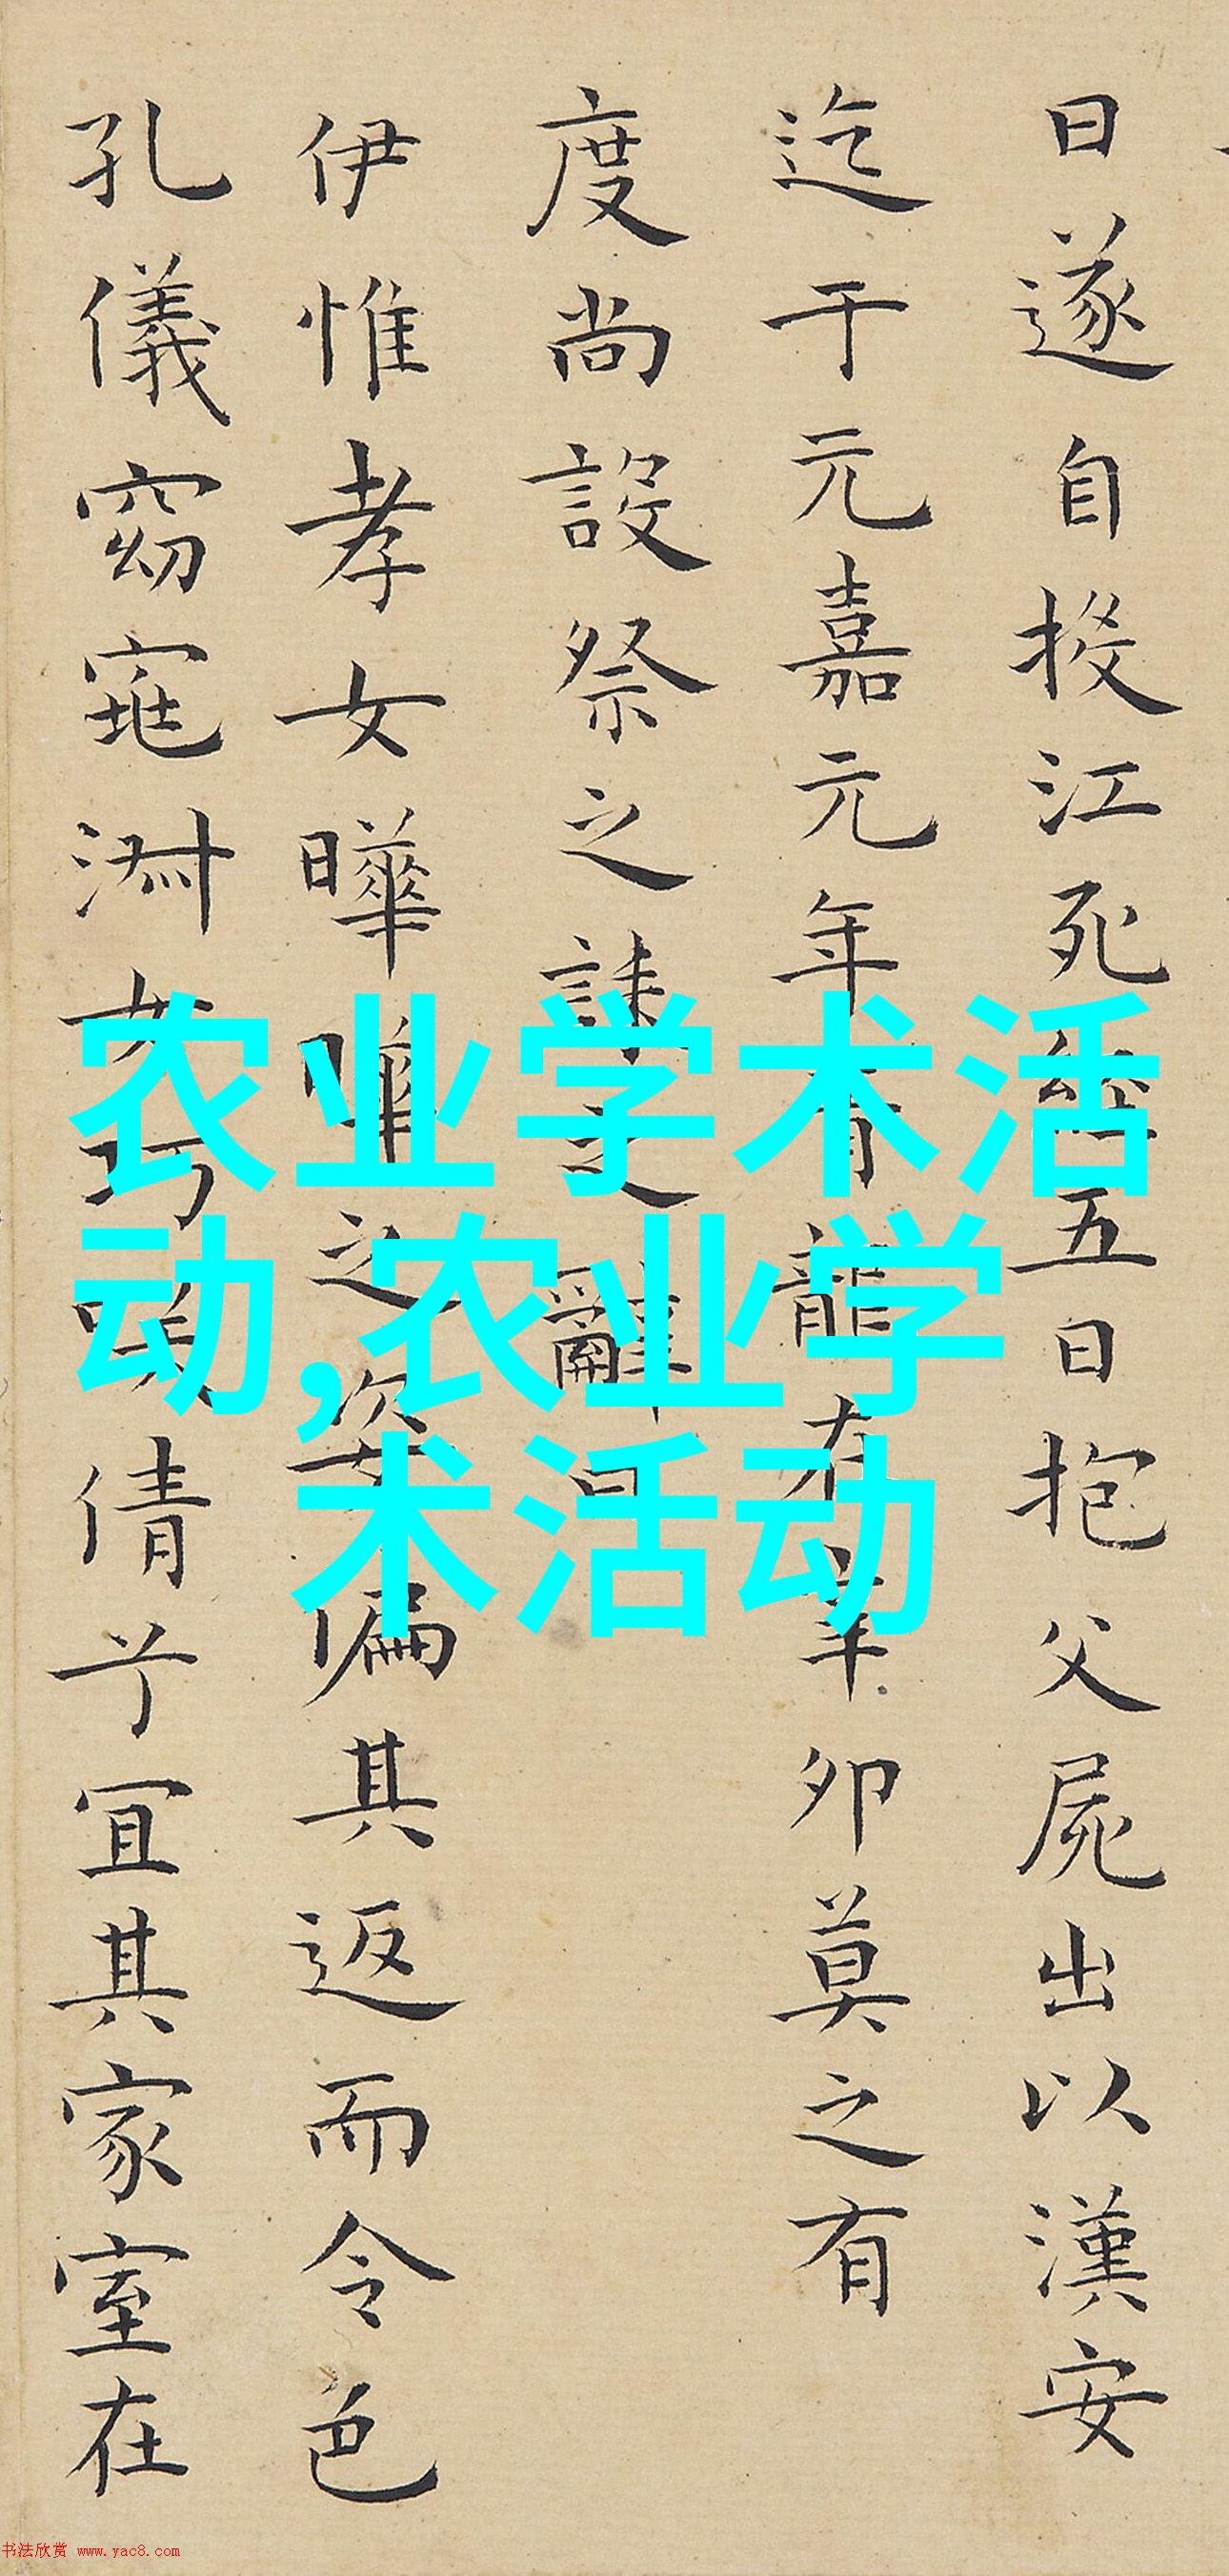 日遂自投江死經五日抱父屍出以漢安
迄于元嘉元年青龍在辛卯莫之有
度尚設祭之誄之辭曰
伊惟孝女曄曄之姿偏其返而令色
孔儀窈窕淑女巧笑倩兮宜其家室在
农业学术活
动,农业学
术活动
书法欣赏 www.yac8.com